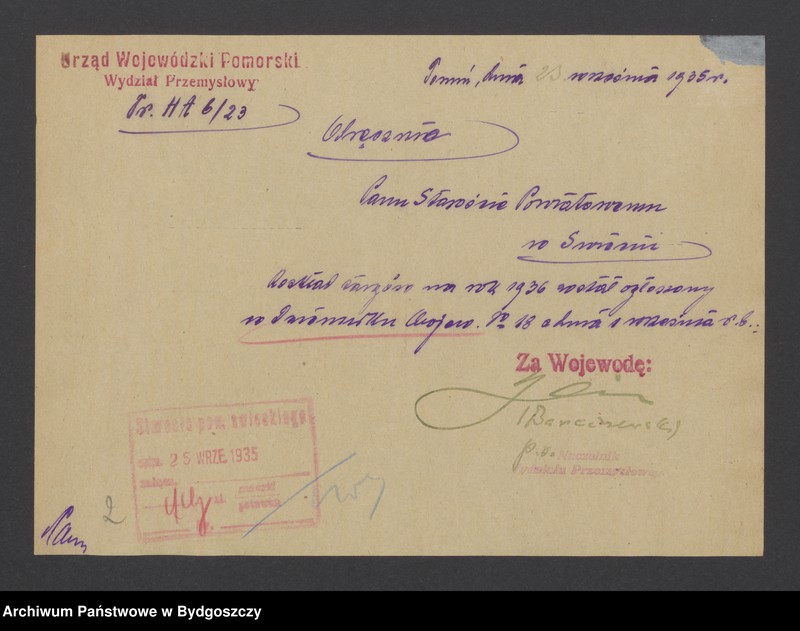 Urząd Wojewódzki Pomorski
Wydział Przemysłowy
Pr. HA 6/23
Toruń, dnia 23 września 1935 r.
Odręcznie
Panu Staroście Powiatowemu
w Świeciu
Rozkład targów na rok 1936 został ogłoszony
w Dzienniku Wojew. Nr 18 z dnia 1 września r.b.
Za Wojewodę:
p.o. Naczelnik
Wydziału Przemysłowego
Starostwo pow. świeckiego
25 WRZE. 1935
2
Archiwum Państwowe w Bydgoszczy